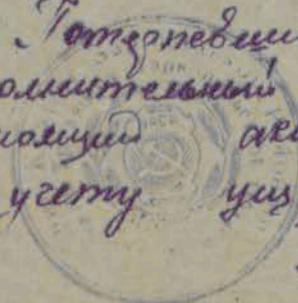 Потерпевши
олнительный
ноящий ак
учету ущ